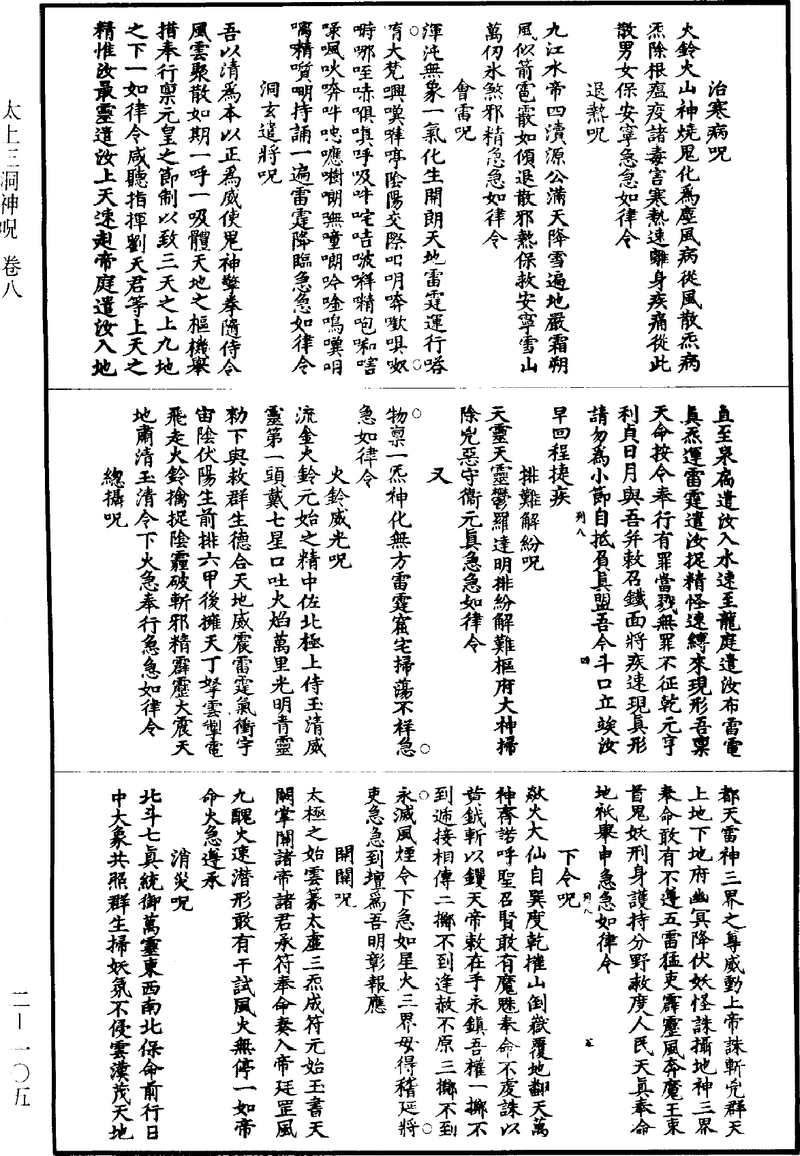 太上三洞神呪 卷八
二—一〇五
治寒病呪
火鈴火山神燒鬼化為塵風病從風散炁病
炁除根瘟疫諸毒害寒熱速離身疾痛從此
散男女保安寧急急如律令
退熱呪
九江水帝四瀆源公滿天降雪遍地嚴霜朔
風似箭雹霰如傾退散邪熱保救安寧雪山
萬仞氷煞邪精急急如律令
會雷呪
渾沌無象一氣化生開朗天地雷霆運行㗭
唷大梵㘗嘆㖫啍陰陽交際吅明哢歡唭㕭
㖷哪咥哧㑨唭呼吸吽咤咭啵釋精咆啝嗐
㖨颯吙哢吽唿噟㗱唧嘸噇唧吟唫嗚㘓哃
囑精嚌唧持誦一遍雷霆降臨急急如律令
洞玄遣將呪
吾以清為本以正為威使鬼神擎拳隨侍令
風雲聚散如期一呼一吸體天地之樞機舉
措奉行禀元皇之節制以致三天之上九地
之下一如律令咸聽指揮劉天君等上天之
精惟汝最靈遣汝上天速赴帝庭遣汝入地
直至泉扃遣汝入水速至龍庭遣汝布雷電
真炁運雷霆遣汝捉精怪速縛來現形吾禀
天命按令奉行有罪當戮無罪不征乾元亨
利貞日月與吾并敕召鐵面將疾速現真形
請勿為小節自抵負真盟吾今斗口立竢汝
早回程捷疾
列八
四
排難解紛呪
天靈天靈鬱羅達明排紛解難樞府大神掃
除兇惡守衞元真急急如律令
又
物禀一炁神化無方雷霆窟宅掃蕩不祥急
急如律令
火鈴威光呪
流金火鈴元始之精中佐北極上侍玉清威
靈第一頭戴七星口吐火焰萬里光明青靈
勑下與救群生德合天地威震雷霆氣衝宇
宙陰伏陽生前排六甲後擁天丁拏雲掣電
飛走火鈴擒捉陰霾破斬邪精霹靂大震天
地肅清玉清令下火急奉行急急如律令
總攝呪
都天雷神三界之尊威動上帝誅斬兇群天
上地下地府幽冥降伏妖怪誅攝地神三界
奉命敢有不遵五雷猛吏霹靂風奔魔王束
首鬼妖刑身護持分野救度人民天真奉命
地祇舉申急急如律令
列八
五
下令呪
歘火大仙自異度乾權山倒嶽覆地翻天萬
神齊諾呼聖召賢敢有魔魅奉命不虔誅以
黃鉞斬以钁天帝敕在手永鎮吾權一擲不
到遞接相傳二擲不到逢赦不原三擲不到
永滅風煙令下急如星火三界毋得稽延將
吏急急到壇為吾明彰報應
開關呪
太極之始雲篆太虛三炁成符元始玉書天
關掌開諸帝諸君承符奉命奏入帝廷罡風
九醜火速潛形敢有干試風火無停一如帝
命火急遵承
消災呪
北斗七真統御萬靈東西南北保命前行日
中大象共照群生掃妖氛不侵雲漢茂天地